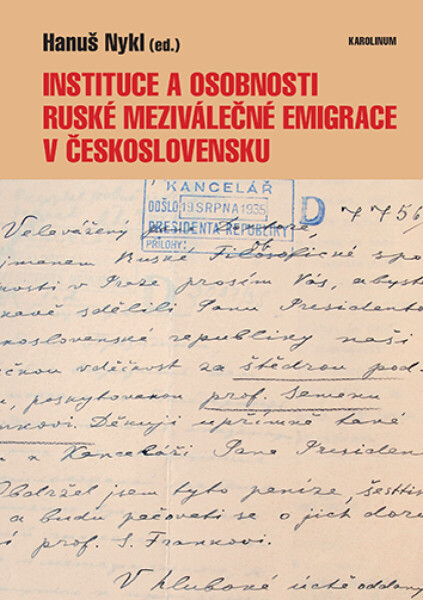 Hanuš Nykl (ed.)
KAROLINUM
INSTITUCE A OSOBNOSTI
RUSKÉ MEZIVÁLEČNÉ EMIGRACE
V ČESKOSLOVENSKU
KANCELÁŘ
DOŠLO 19 SRPNA 1935
PRESIDENTA REPUBLIKY
PŘÍLOHY:
D 7756/
Velevážený
jménem Ruské Filosofické spo
nosti v Praze prosím Vás, abyst
kavě sdělili Panu Presidento
koslovenské republiky naši
ečnou vděčnost za štědrou pod-
u, poskytovanou prof. Semenu
nkovi. Děkuji upřímně také
a Kanceláři Pana Presiden
Obdržel jsem tyto peníze,
a budu pečovati se o jich doru
í prof. S. Frankovi.
V hluboké úctě oddaný